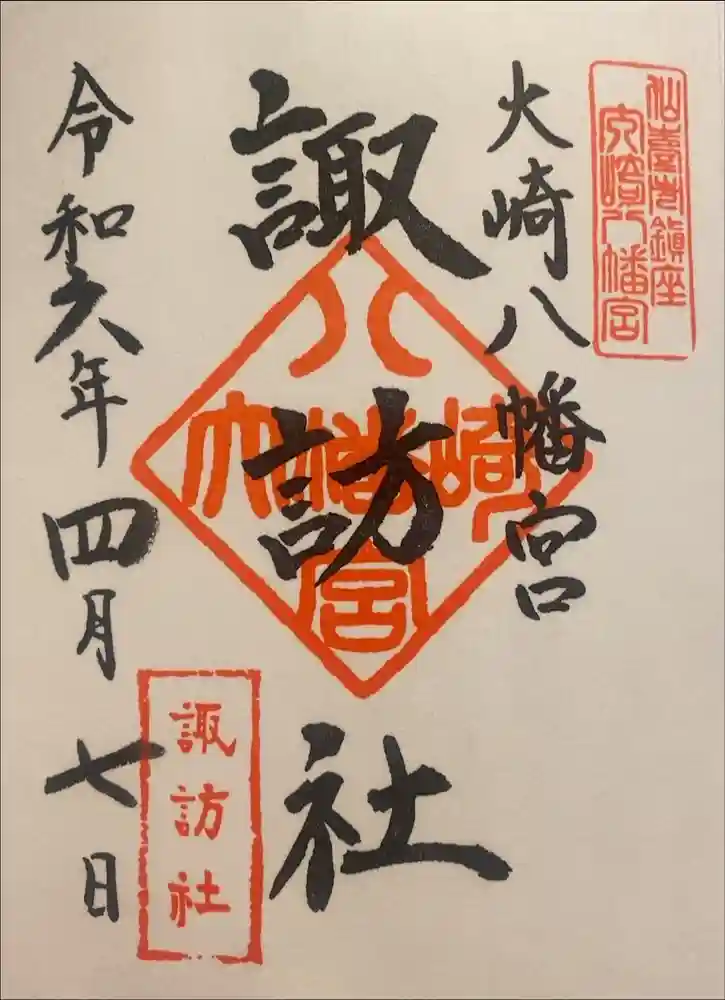 仙臺市鎮座
大崎八幡宮
大崎八幡宮
諏訪社
八幡宮大崎
諏訪社
令和六年四月七日